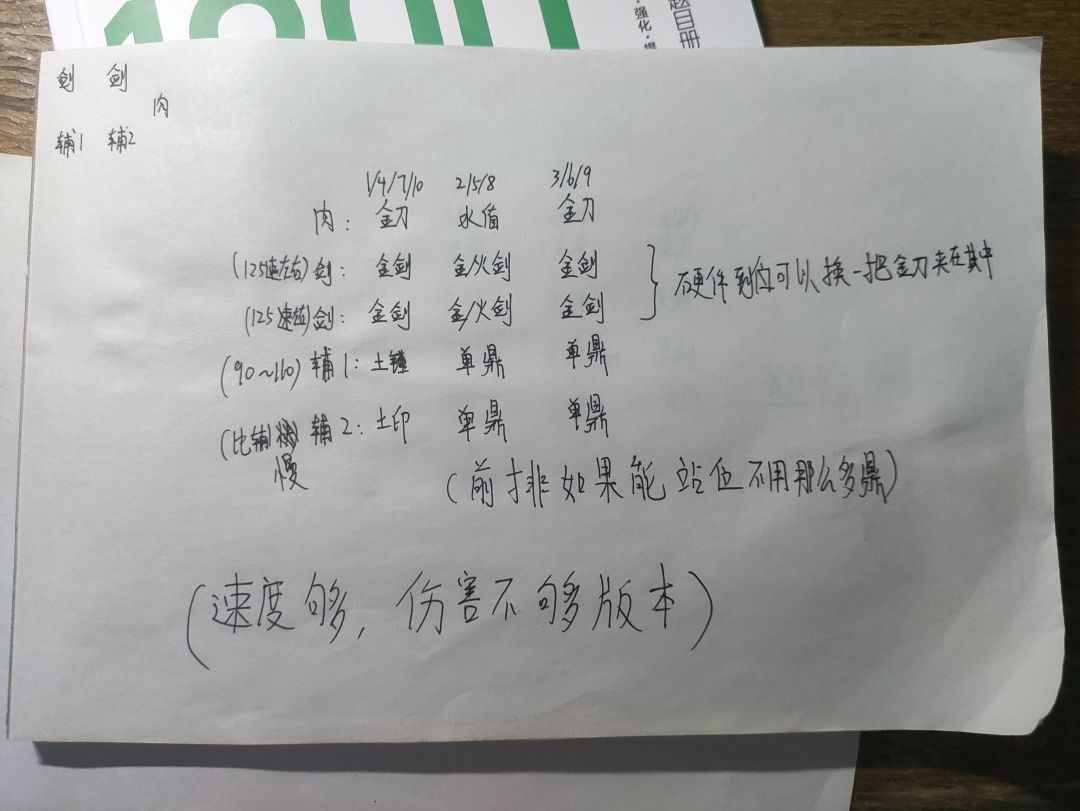 题目册
·强化·提
剑 剑
肉
辅1 辅2
1/4/7/10 2/5/8 3/6/9
肉： 金刀 水盾 金刀
(125速左右)剑： 金剑 金/火剑 金剑
(125速左右)剑： 金剑 金/火剑 金剑
硬件到位可以换一把金刀夹在其中
(90~110) 辅1：土锤 单鼎 单鼎
(比辅1慢) 辅2：土印 单鼎 单鼎
(前排如果能站住不用那么多鼎)
(速度够，伤害不够版本)